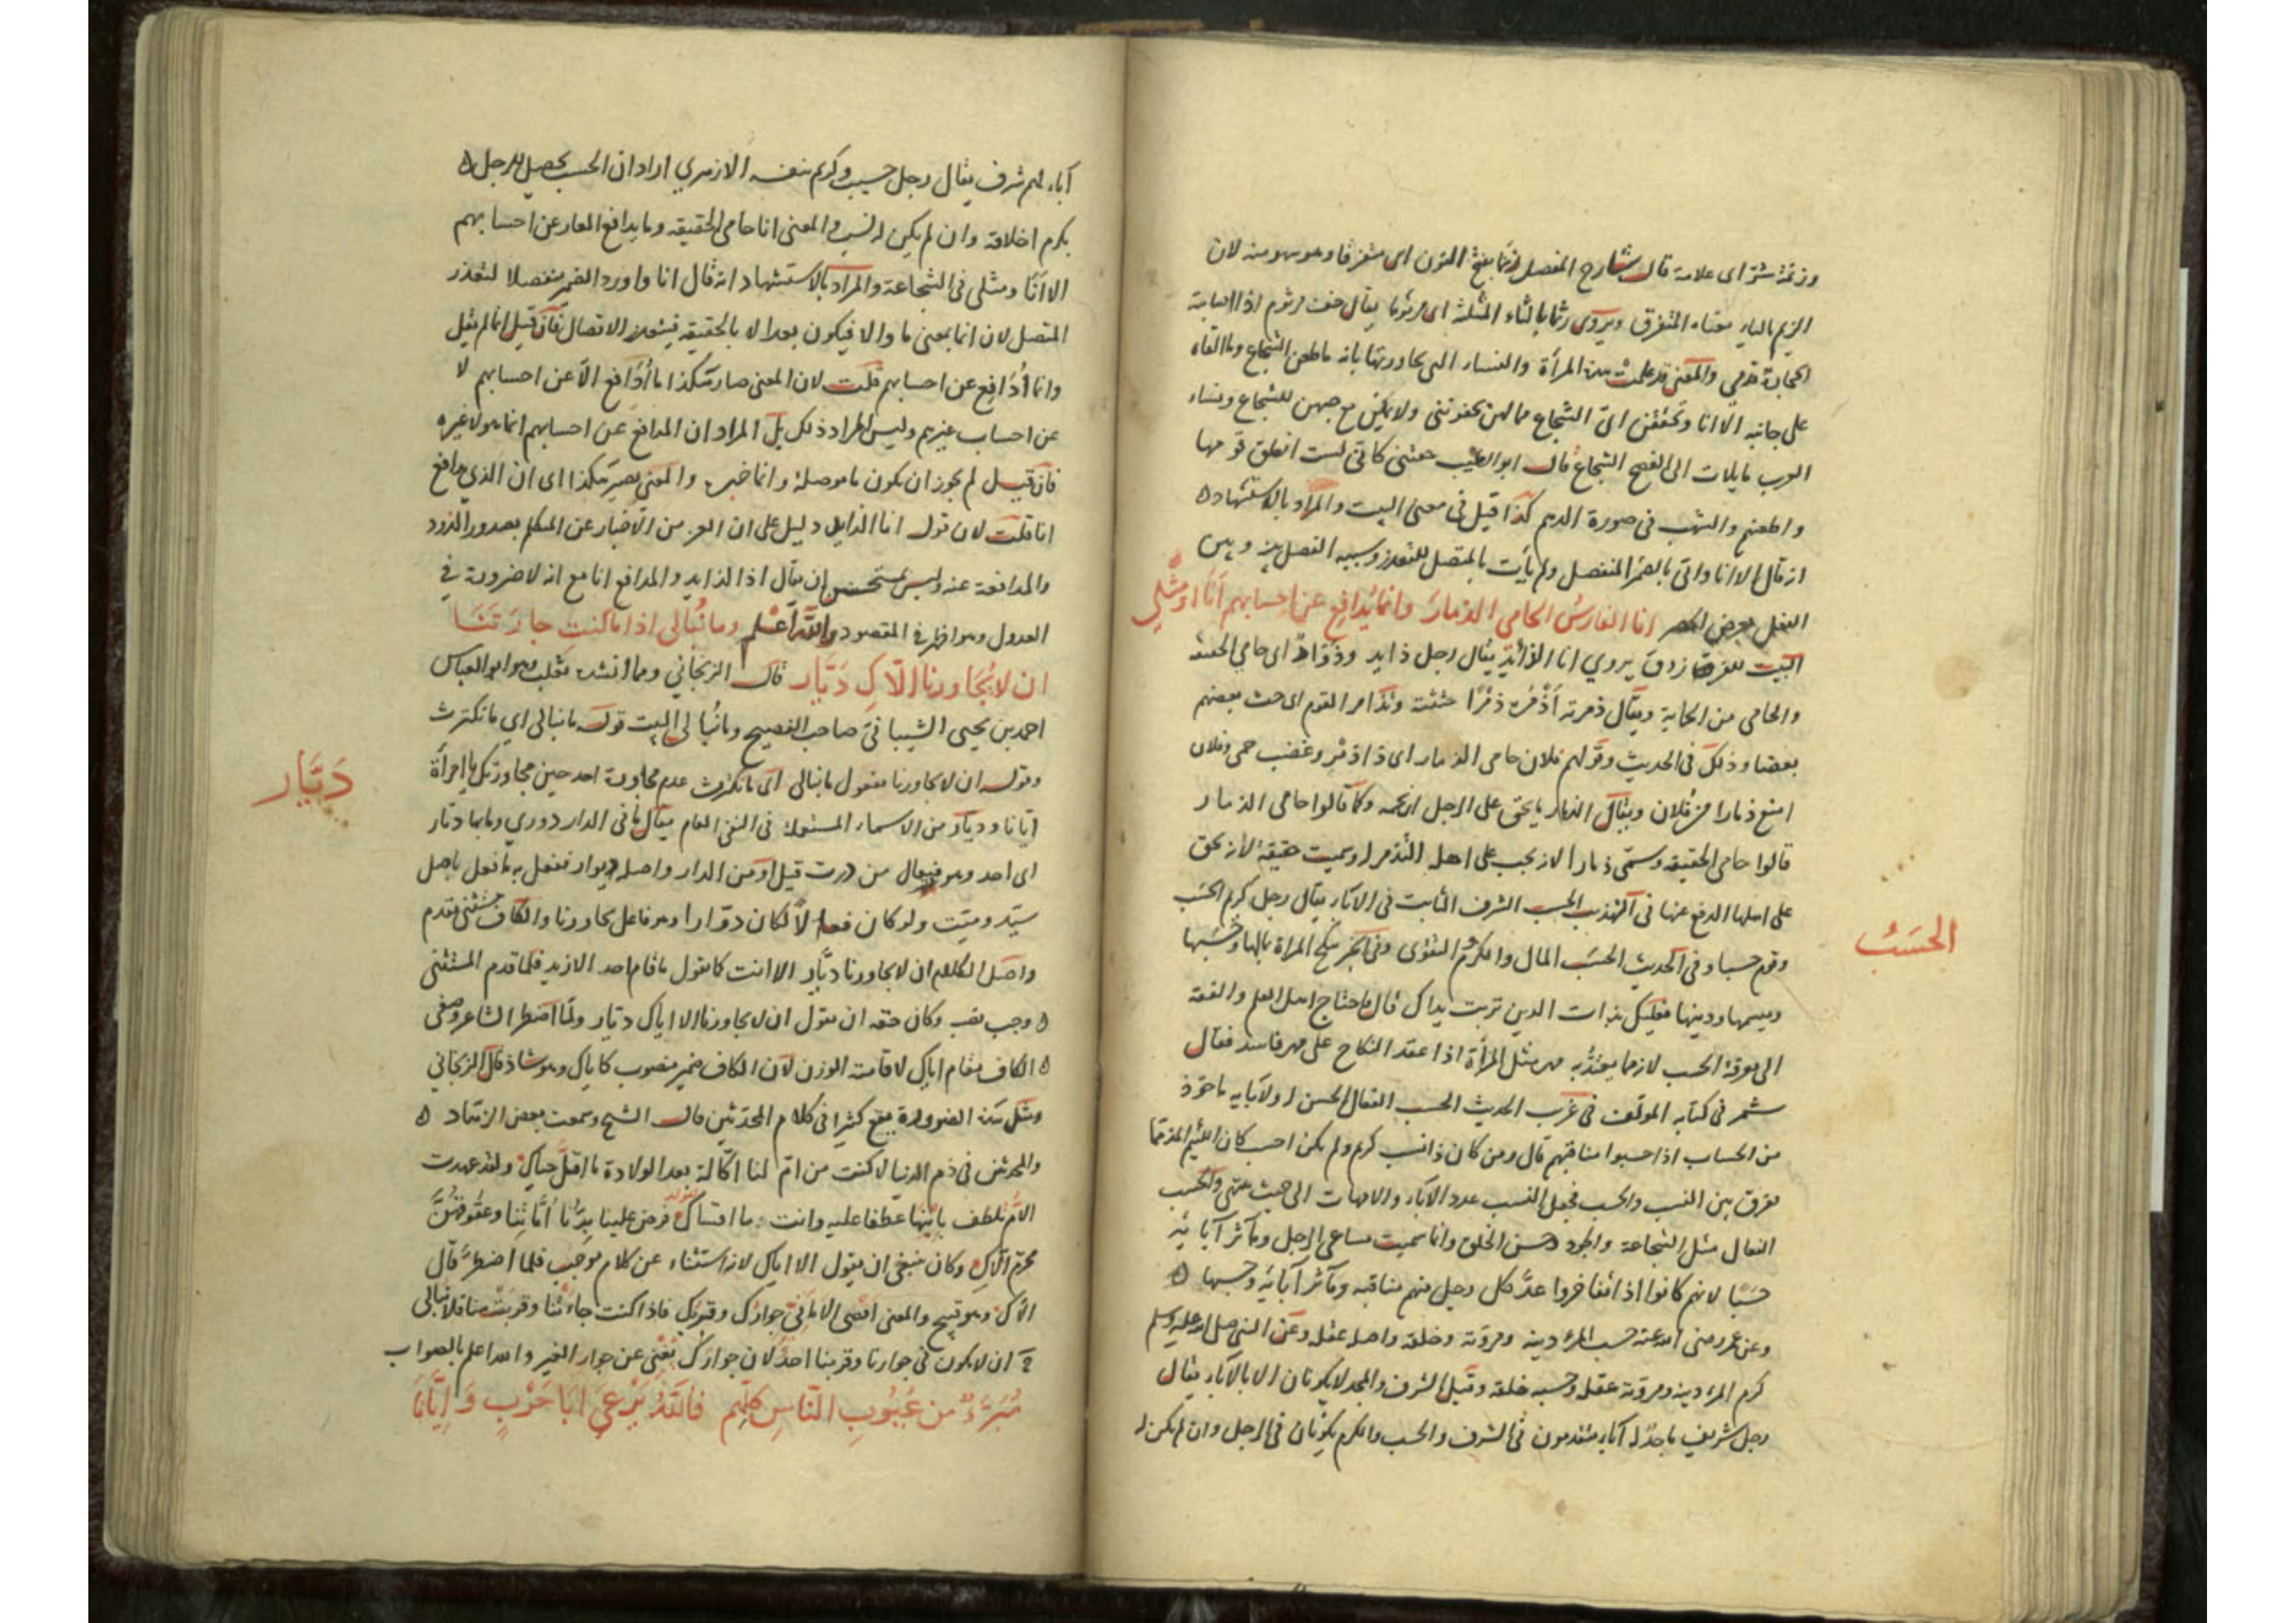 وزنمة شتر اى علامة قال شارح المفصل زيما بفتح النون اى متفرقا وهو سهو منه لان
الزيم بالياء معناه المتفرق ويروى رثما بالثاء المثلثة اى مرثوما يقال خف مرثوم اذا اصابته
الحجارة فدمى والمعنى قد علمت هذه المرأة والنساء التى جاورنها بانه ما طعن الشجاع وما القاه
على جانبه الا انا وتحققن انى الشجاع
العرب مايلات الى الفصيح الشجاع قال ابو الطيب
واطعنهم والشهب فى صورة الدهم كذا قيل فى معنى البيت والمراد بالاستشهاد
انه قال الا انا واتى بالضمير المنفصل ولم يأت بالمتصل للتعذر وسببه الفصل بينه وبين
الفعل بغرض الحصر انا الفارس الحامى الذمار وانما يدافع عن احسابهم انا او مثلى
البيت للفرزدق يروى انا الذائد يقال رجل ذايد وذواد اى حامى الحقيقة
والحامى من الحماية ويقال ذمرته اذمره ذمرا حثثته وتذامر القوم اى حث بعضهم
بعضا وذلك فى الحديث وقولهم فلان حامى الذمار اى اذا ذمر وغضب حمى وفلان
امنع ذمارا من فلان ويقال الذمار ما يحق على الرجل ان يحميه وكما قالوا حامى الذمار
قالوا حامى الحقيقة وسمى ذمارا لانه يجب على اهله التذمر له وسميت حقيقة لانه يحق
على اهلها الدفع عنها فى التهذيب الحسب الشرف الثابت فى الآباء يقال رجل كريم الحسب
وقوم حسباء وفى الحديث الحسب المال والكرم التقوى وفى الخبر تنكح المرأة لمالها وحسبها
وميسمها ودينها فعليك بذات الدين تربت يداك قال فاحتاج اهل العلم والفقه
الى معرفة الحسب لانه مما يعتد به مهر مثل المرأة اذا عقد النكاح على مهر فاسد فقال
شمر فى كتابه المؤلف فى غريب الحديث الحسب الفعال الحسن له ولآبايه ماخوذ
من الحساب اذا حسبوا مناقبهم قال ومن كان ذا نسب كريم ولم يكن احسب كان اللئيم المذمما
ففرق بين النسب والحسب فجعل النسب عدد الآباء والامهات الى حيث ينتهى والحسب
الفعال مثل الشجاعة والجود وحسن الخلق وانما سميت مساعى الرجل ومآثر آبائه
حسبا لانهم كانوا اذا تفاخروا عد كل رجل منهم مناقبه ومآثر آبائه وحسبها
وعن عمر رضى الله عنه حسب المرء دينه ومروته وخلقه واصله عقله وعن النبى صلى الله عليه وسلم
كرم المرء دينه ومروته عقله وحسبه خلقه وقيل الشرف والمجد لا يكونان الا بالآباء يقال
رجل شريف ماجد له آباء متقدمون فى الشرف والحسب والكرم يكونان فى الرجل وان لم يكن له
الحسب
آباء لهم شرف يقال رجل حسيب وكريم بنفسه الازهرى اراد ان الحسب يحصل للرجل
بكرم اخلاقه وان لم يكن له نسب والمعنى انا حامى الحقيقة وما يدافع العار عن احسابهم
الا انا ومثلى فى الشجاعة والمراد بالاستشهاد انه قال انا واورد الضمير منفصلا لتعذر
المتصل لان انما بمعنى ما والا فيكون بعد الا بالحقيقة فيتعذر الاتصال فان قيل انما لم يقل
وانما أدافع عن احسابهم قلت لان المعنى صار هكذا ما أدافع الا عن احسابهم لا
عن احساب غيرهم وليس المراد ذلك بل المراد ان المدافع عن احسابهم انما هو لا غيره
فان قيل لم يجوز ان يكون ما موصلة وانا خبره والمعنى يصير هكذا اى ان الذى يدافع
انا قلت لان قوله انا الذايد دليل على ان الغرض من الاخبار عن المتكلم بصدور الذود
والمدافعة عنه وليس بمستحسن ان يقال اذا الذايد والمدافع انا مع انه لا ضرورة فى
العدول وهو اظهر فى المقصود والله أعلم وما نبالى اذا ما كنت جارتنا
ان لا يجاورنا الاك ديار قال الزنجانى ومما انشده ثعلب وهو ابو العباس
احمد بن يحيى الشيبانى صاحب الفصيح وما نبالى البيت قوله ما نبالى اي ما نكترث
وقوله ان لا يجاورنا مفعول ما نبالى اى ما نكترث عدم مجاورة احد حين مجاورتك يا امرأة
ايانا وديار من الاسماء المستعملة فى النفى العام يقال ما فى الدار دوري وما بها ديار
اى احد وهو فيعال من درت قيل او من الدار واصله ديوار ففعل به ما فعل باصل
سيد وميت ولو كان فعالا لكان دوارا وهو فاعل يجاورنا والكاف مستثنى مقدم
واصل الكلام ان لا يجاورنا ديار الا انت كما تقول ما قام احد الا زيد فلما قدم المستثنى
وجب نصبه وكان حقه ان يقول ان لا يجاورنا الا اياك ديار ولما اضطر الشاعر وضع
الكاف مقام اياك لاقامة الوزن لان الكاف ضمير منصوب كاياك وهو شاذ قال الزنجانى
ومثل هذه الضرورة يقع كثيرا فى كلام المحدثين قال الشيخ وسمعت بعض الزهاد
والمحدثين فى ذم الدنيا لا كنت من ام لنا اكالة بعد الولادة ما اقل حياك ولقد عهدت
الام تلطف بابنها عطفا عليه وانت ما اقساك فرض علينا برنا أماتنا وعقوقهن
محرم الاك وكان ينبغى ان يقول الا اياك لانه استثناء عن كلام موجب فلما اضطر قال
الاك وهو قبيح والمعنى اقصى الامانى جوارك وقربك فاذا كنت جارتنا وقربت منا فلا نبالى
ان لا يكون فى جوارنا وقربنا احد لان جوارك يغنى عن جوار الغير والله اعلم بالصواب
مبرء من عيوب الناس كلهم فالله يرعى ابا حرب وايانا
ديار